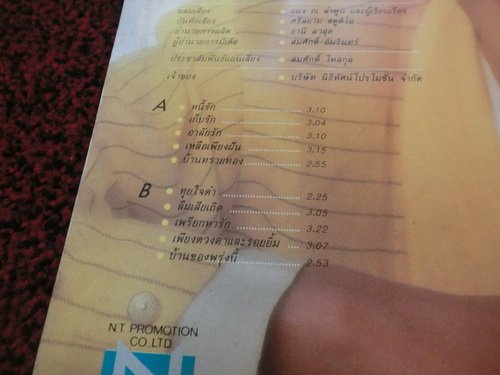 ผสมเสียง แมง ณ ลำพูน และผู้เรียบเรียง
บันทึกเสียง ศรีสยาม สตูดิโอ
อำนวยการผลิต ธานี
ผู้อำนวยการมีเดีย สมศักดิ์ อัมรินทร์
ประชาสัมพันธ์แผ่นเสียง สมศักดิ์ โหลกุล
เจ้าของ บริษัท นิธิทัศน์โปรโมชั่น จำกัด
A หนี้รัก 3.10
เก็บรัก 3.04
อาลัยรัก 3.10
เหลือเพียงฝัน 3.15
บ้านทรายทอง 2.55
B ทุยใจดำ 2.25
ลืมเสียเถิด 3.05
เพรียกหารัก 3.22
เพียงดวงตาและรอยยิ้ม 3.07
บ้านของพรุ่งนี้ 2.53
N.T. PROMOTION
CO.,LTD